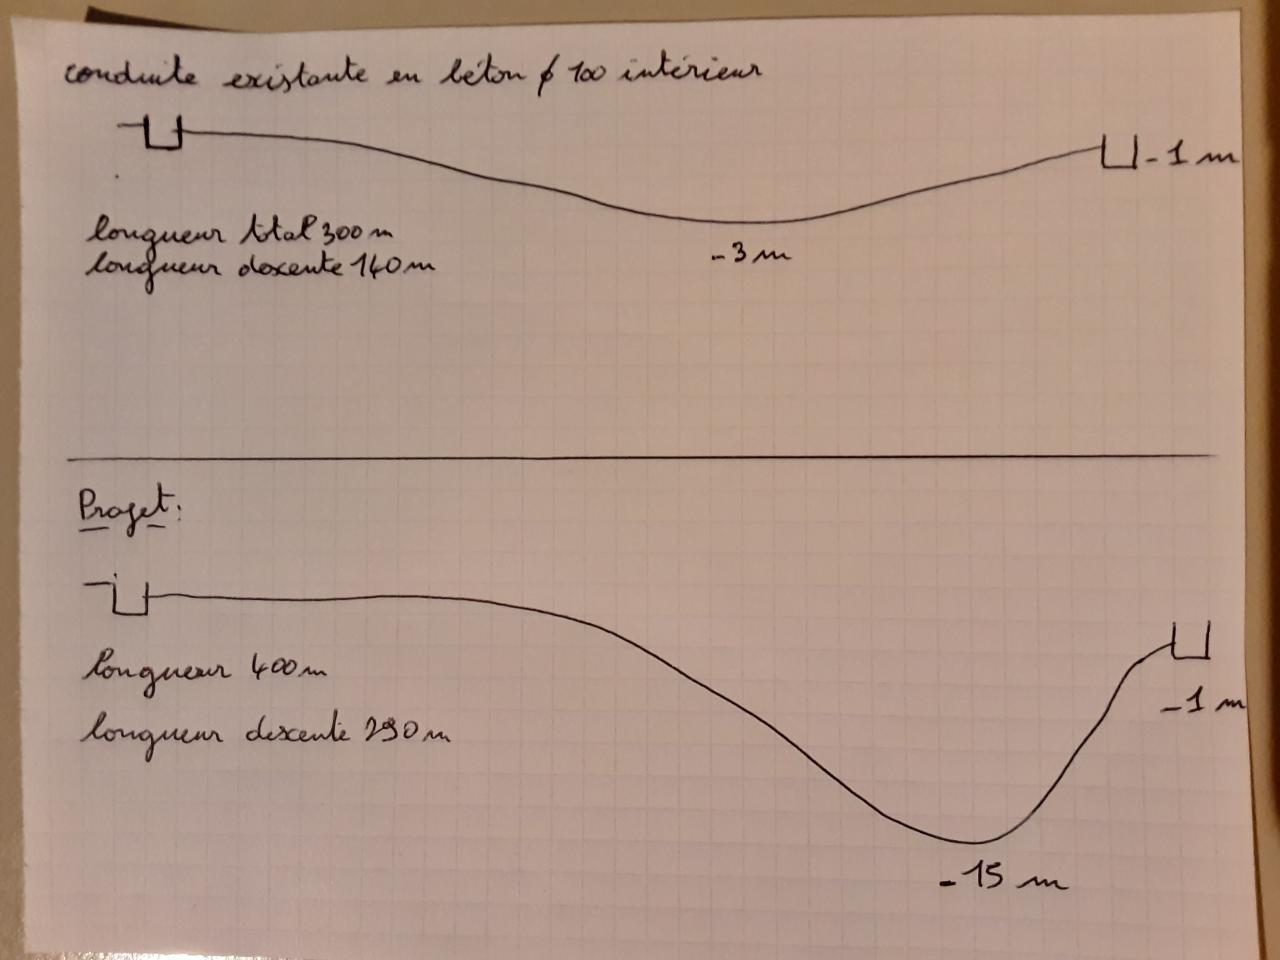 conduite existante en béton ϕ 100 intérieur
-1 m
longueur total 300 m
longueur descente 140 m
-3 m
Projet:
longueur 400 m
-1 m
longueur descente 290 m
-15 m